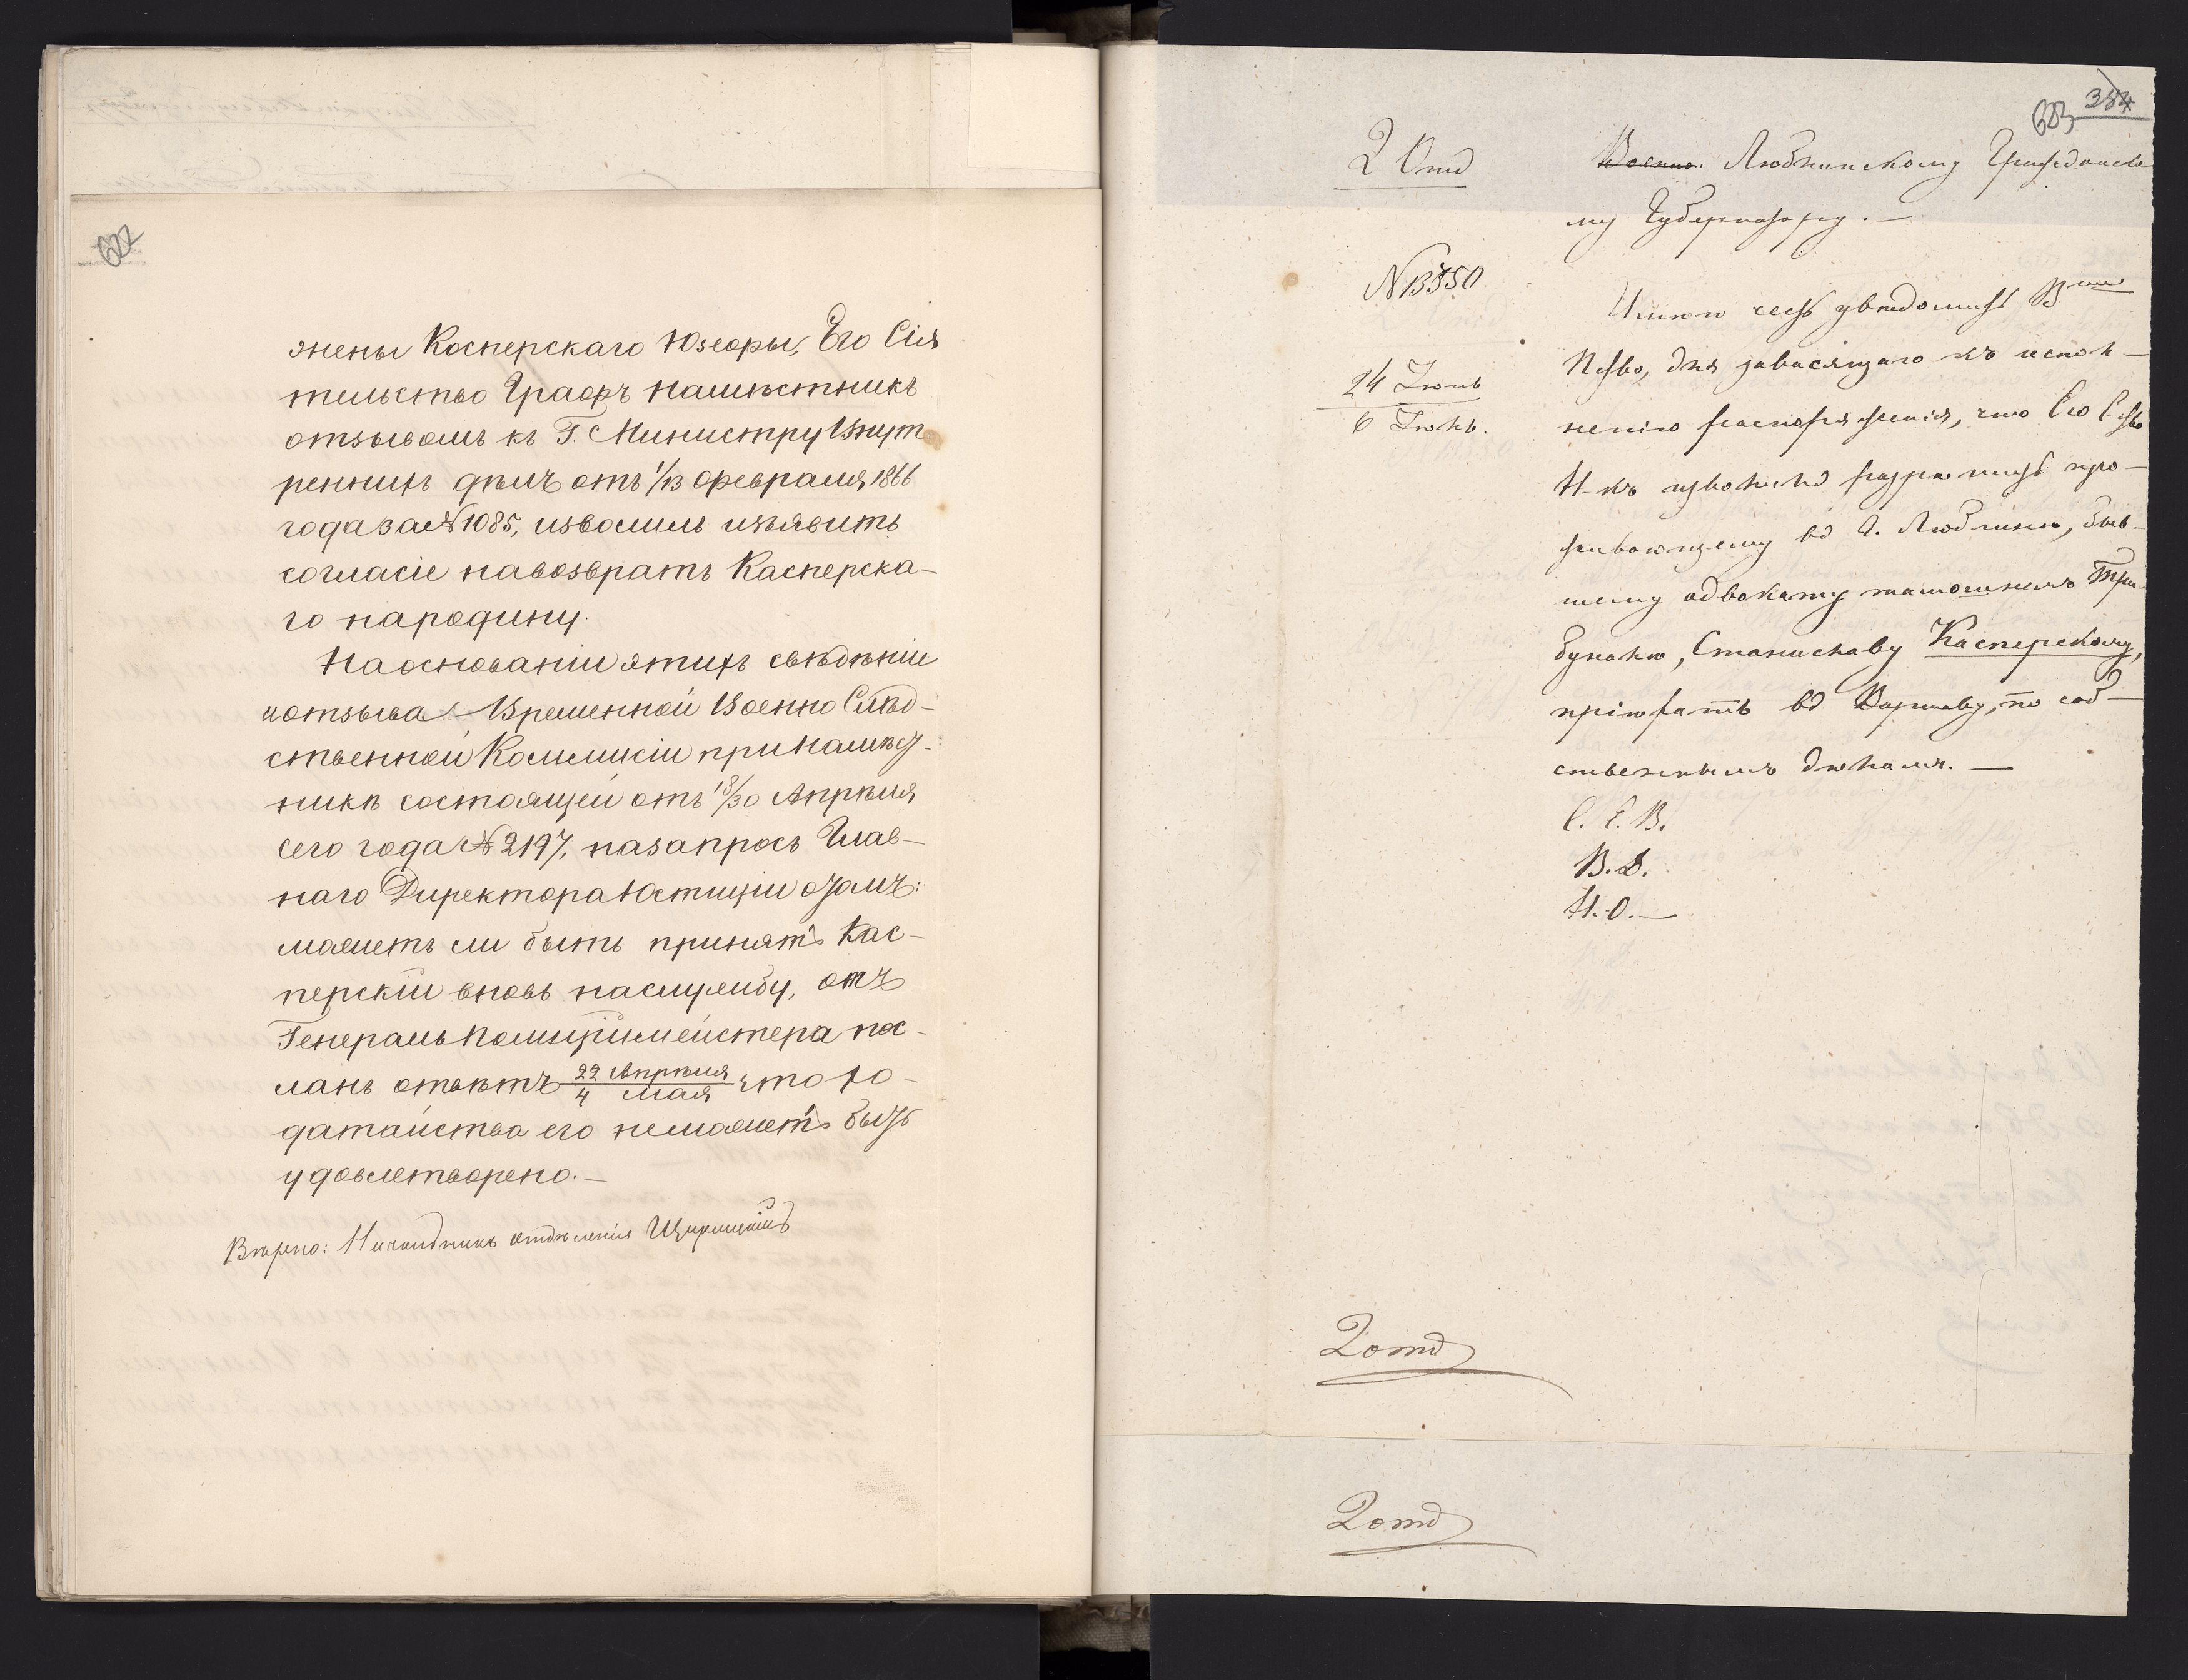 622
жены Касперскаго Юзефы, Его Сія
тельство Графъ Намѣстникъ
отзывомъ къ Г. Министру Внут
реннихъ дѣлъ отъ 1/13 февраля 1866
года за № 1085, изволилъ изъявить
согласіе на возвратъ Касперска-
го на родину.
На основаніи этихъ свѣдѣній
и отзыва Временной Военно Слѣд-
ственной Коммисіи при Намѣст-
никѣ состоящей отъ 18/30 Апрѣля
сего года № 2197, на запросъ Глав-
наго Директора Юстиціи о томъ:
можетъ ли быть принятъ Кас-
перскій вновь на службу, отъ
Генералъ Полиціймейстера пос-
ланъ отвѣтъ 22 Апрѣля / 4 Мая что хо-
датайство его не можетъ быть
удовлетворено.—
Вѣрно: Начальникъ отдѣленія
354
623
2 Отд
Военно. Люблинскому Гражданско
му Губернатору.—
N 13550
24 Іюнь
6 Іюль.
Имѣю честь увѣдомить В
П-ство, для зависящаго къ испол-
ненію распоряженія, что Его С-ство
Н-къ изволилъ разрѣшить про-
живающему въ г. Люблинѣ, быв-
шему адвокату тамошнимъ Три-
буналѣ, Станиславу Касперскому,
пріѣхать въ Варшаву, по соб-
ственнымъ дѣламъ.—
С. Е. В.
В. Д.
Н. О.—
2 отд
2 отд